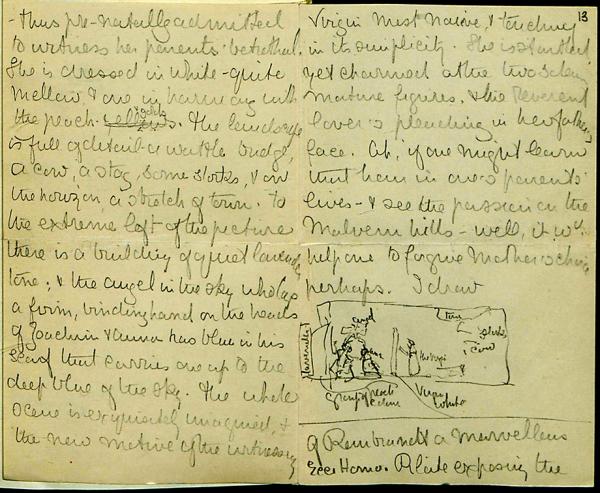 thus pre-natally admitted
to witness her parents' betrothal.
She is dressed in white - quite
mellow, & one in harmony with
the peach-yellows. The landscape
is full of detail - a wattle bridge,
a cow, a stag, some storks, & on
the horizon a stretch of town. To
the extreme left of the picture
there is a building of quiet lavender
tone; & the angel in the sky who lays
a firm, binding hand on the heads
of Joachim & Anna has blue in his
scarf that carries one up to the
deep blue of the sky. The whole
scene is exquisitely imagined, &
the new motive of the witnessing
13
Virgin most naive, & touching
in its simplicity. She is startled
yet charmed at the two solemn
mature figures, & the reverent
lover's pleading in her father's
face. Ah, if one might learn
that hour in one's parents'
lives - & see the passion on the
Malvern hills - well, it wd.
help one to forgive Mother's
perhaps. I draw
lavender
angel
Anne
town
storks
cow
Group of peach
colour
Virgin
white
of Rembrandt a marvellous
Ecce Homo. Pilate exposing the